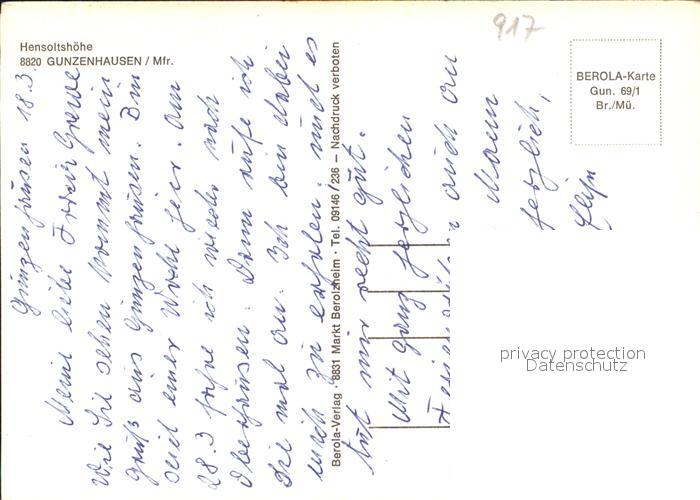 Hensoltshöhe
8820 GUNZENHAUSEN / Mfr.
917
BEROLA-Karte
Gun. 69/1
Br./Mü.
Berola-Verlag · 8831 Markt Berolzheim · Tel. 09146/236 — Nachdruck verboten
Gunzenhausen 18.3.
Meine liebe Frau Grewe
Wie Sie sehen kommt mein
Gruß aus Gunzenhausen. Bin
seit einer Woche hier. Am
28.3 fahre ich wieder nach
Oberhausen. Dann rufe ich
Sie mal an. Ich bin dabei
mich zu erholen. und es
tut mir recht gut.
Mit ganz herzlichen
auch an
Mann
herzlich,
privacy protection
Datenschutz